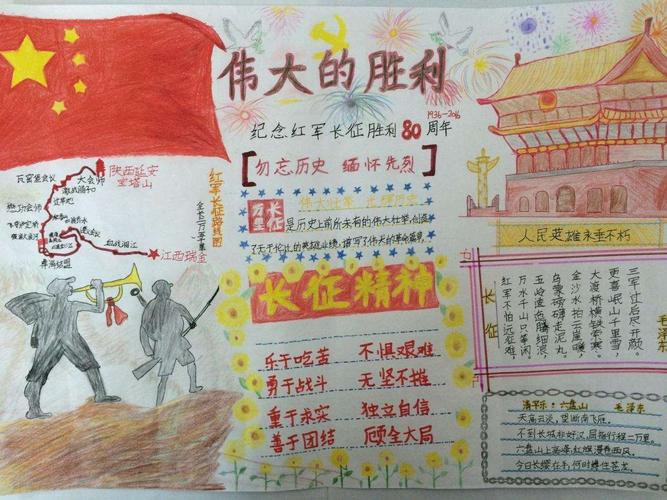 伟大的胜利
1936-2016
纪念红军长征胜利80周年
[勿忘历史 缅怀先烈]
伟大壮举 光辉历史
万里
长征
是历史上前所未有的伟大壮举,创造
了无与伦比的英雄业绩,谱写了伟大的革命篇章
红军长征路线图
全长二万五千里
陕西延安
宝塔山
瓦窑堡会议
大会师
激战腊子口
过草地
懋功会师
飞夺泸定桥
强渡大渡河
遵义会议
血战湘江
江西瑞金
彝海结盟
长征精神
乐于吃苦 不惧艰难
勇于战斗 无坚不摧
重于求实 独立自信
善于团结 顾全大局
人民英雄永垂不朽
长征
红军不怕远征难,
万水千山只等闲。
五岭逶迤腾细浪,
乌蒙磅礴走泥丸。
金沙水拍云崖暖,
大渡桥横铁索寒。
更喜岷山千里雪,
三军过后尽开颜。
毛泽东
清平乐·六盘山 毛泽东
天高云淡,望断南飞雁。
不到长城非好汉,屈指行程二万里。
六盘山上高峰,红旗漫卷西风。
今日长缨在手,何时缚住苍龙